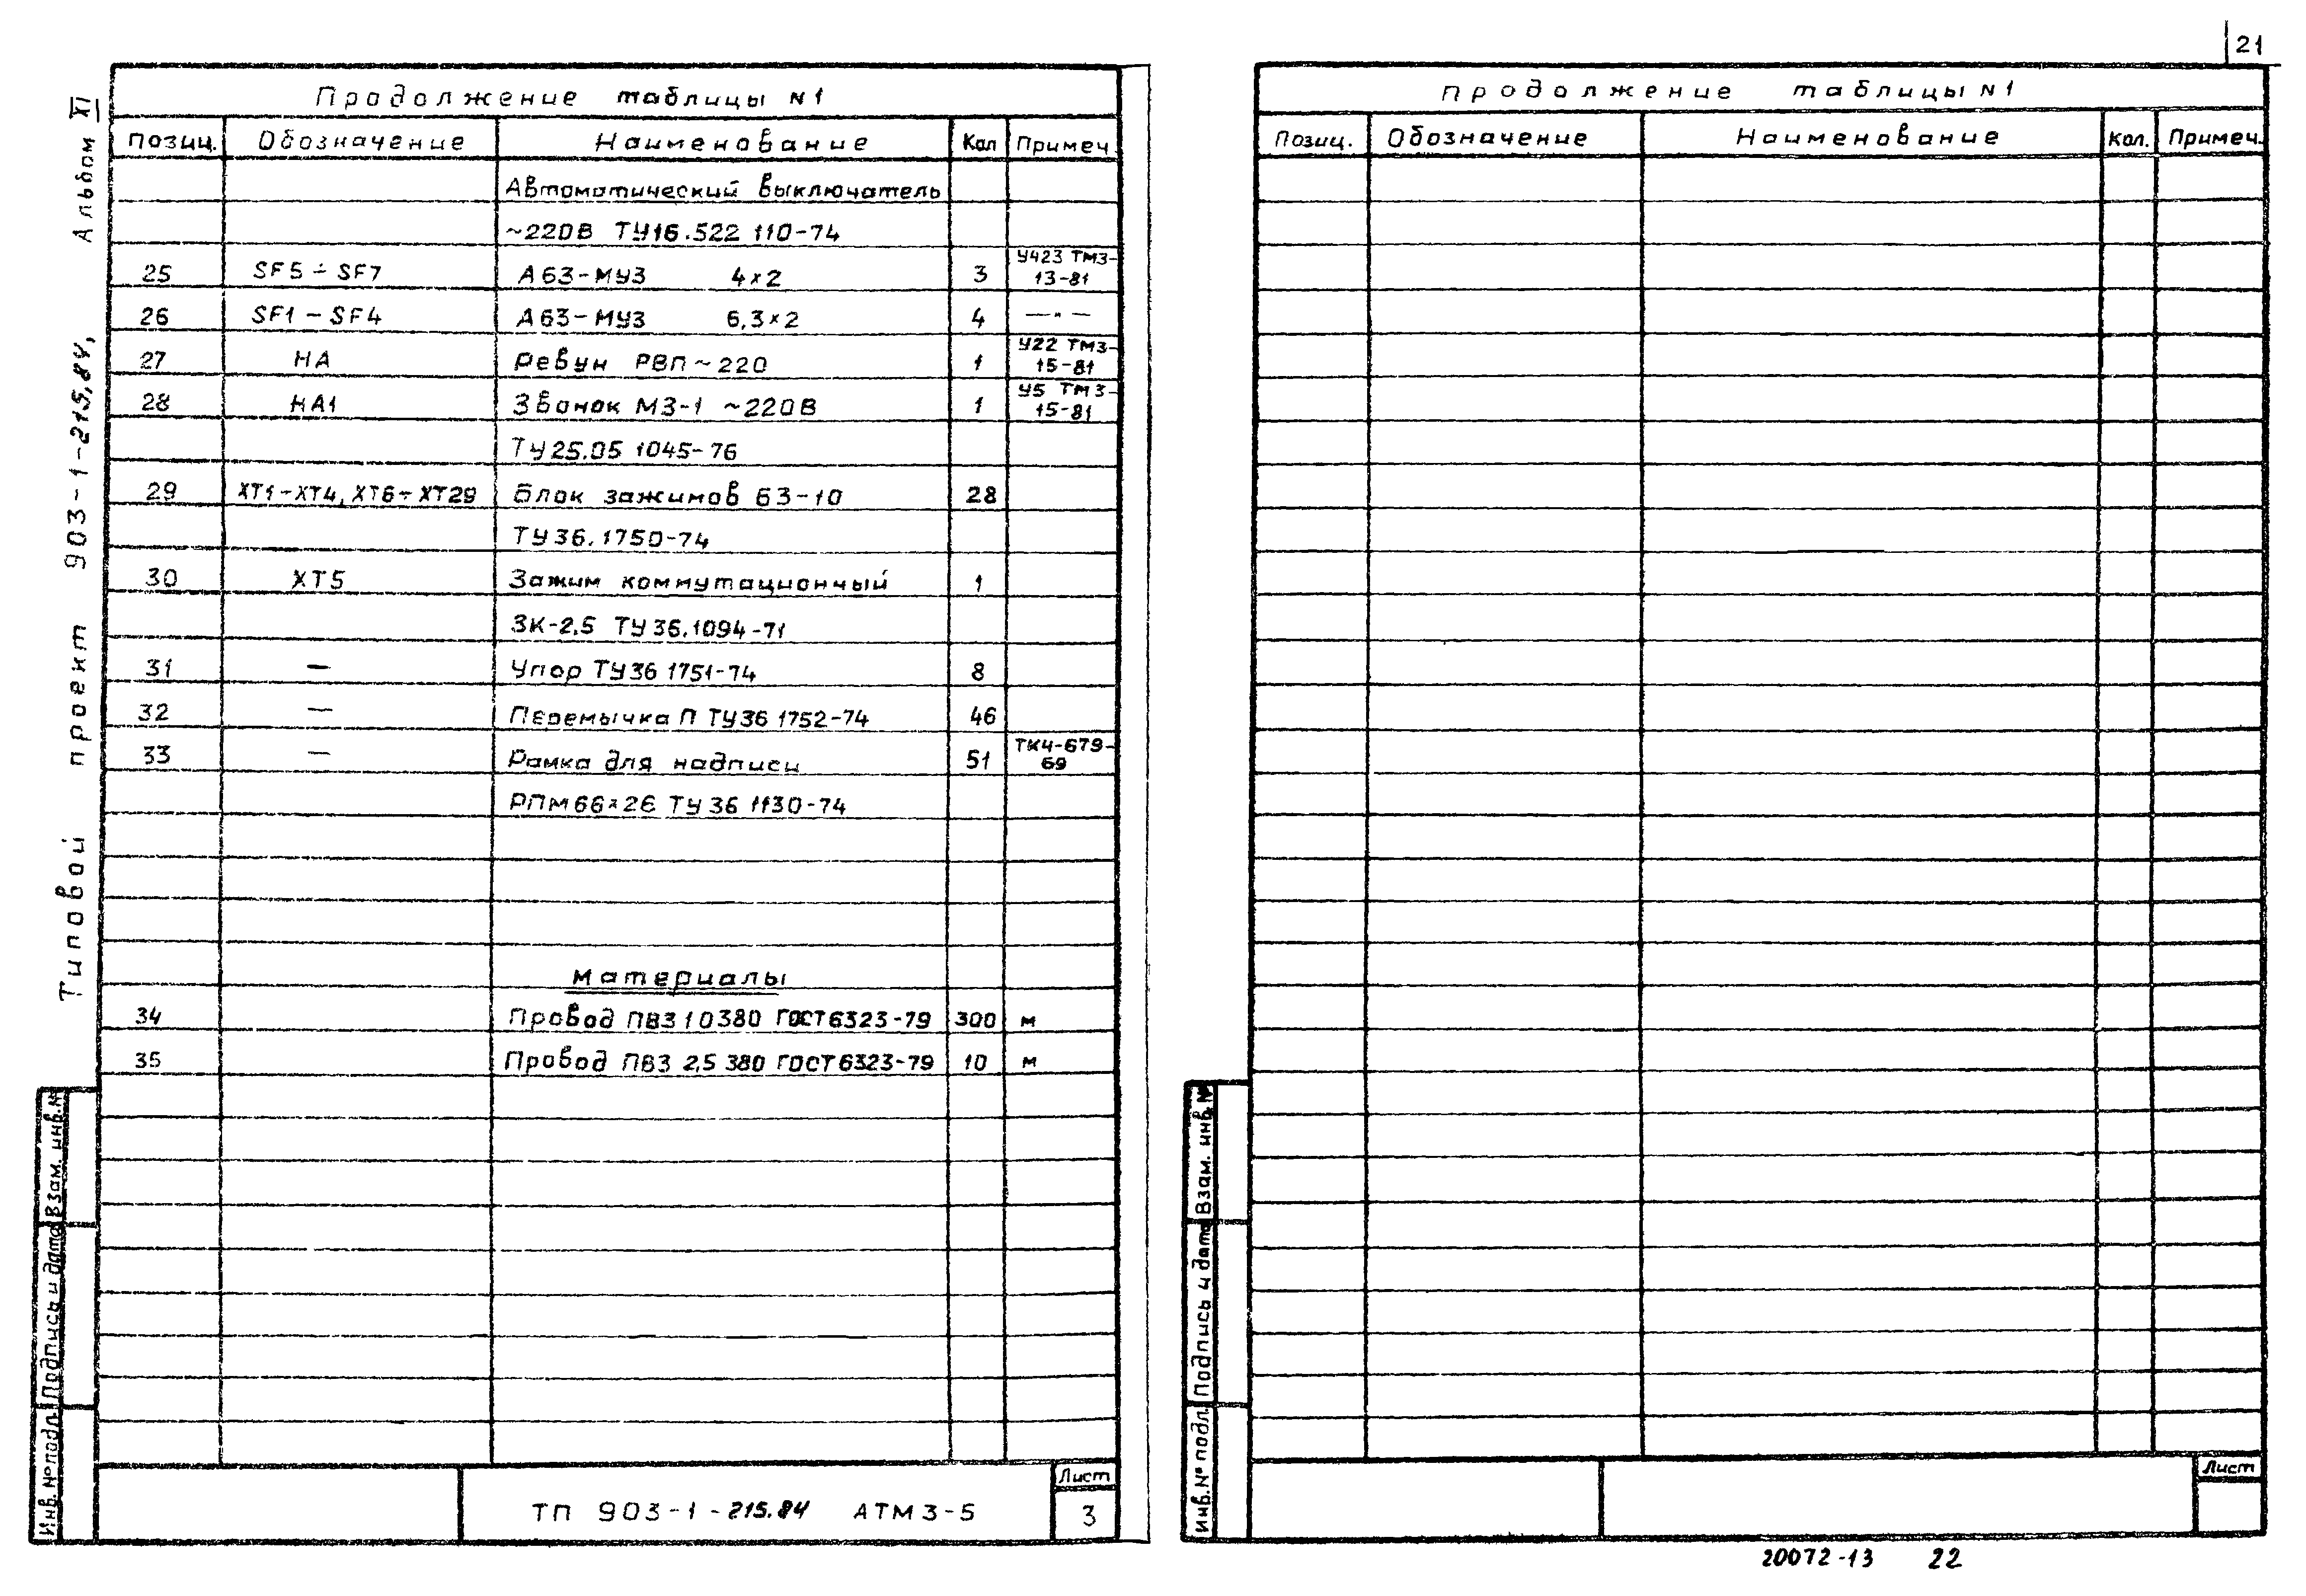 21
Альбом XI
Типовой проект 903-1-215.84,
Продолжение таблицы N1
Позиц. Обозначение Наименование Кол Примеч
Автоматический выключатель
~220В ТУ16.522 110-74
25 SF5÷SF7 А63-МУ3 4×2 3 У423 ТМ3-13-81
26 SF1-SF4 А63-МУ3 6,3×2 4 —"—
27 НА Ревун РВП~220 1 У22 ТМ3-15-81
28 НА1 Звонок МЗ-1 ~220В 1 У5 ТМ3-15-81
ТУ25.05 1045-76
29 ХТ1-ХТ4, ХТ6÷ХТ29 Блок зажимов БЗ-10 28
ТУ36.1750-74
30 ХТ5 Зажим коммутационный 1
ЗК-2,5 ТУ36.1094-71
31 — Упор ТУ36 1751-74 8
32 — Перемычка П ТУ36 1752-74 46
33 — Рамка для надписи 51 ТК4-679-69
РПМ66×26 ТУ36 1130-74
Материалы
34 Провод ПВ3 1 0 380 ГОСТ6323-79 300 м
35 Провод ПВ3 2,5 380 ГОСТ6323-79 10 м
Взам. инв. №
Подпись и дата
Инв. № подл.
ТП 903-1-215.84 АТМ3-5
Лист
3
Продолжение таблицы N1
Позиц. Обозначение Наименование Кол. Примеч.
Взам. инв. №
Подпись и дата
Инв. № подл.
Лист
20072-13 22